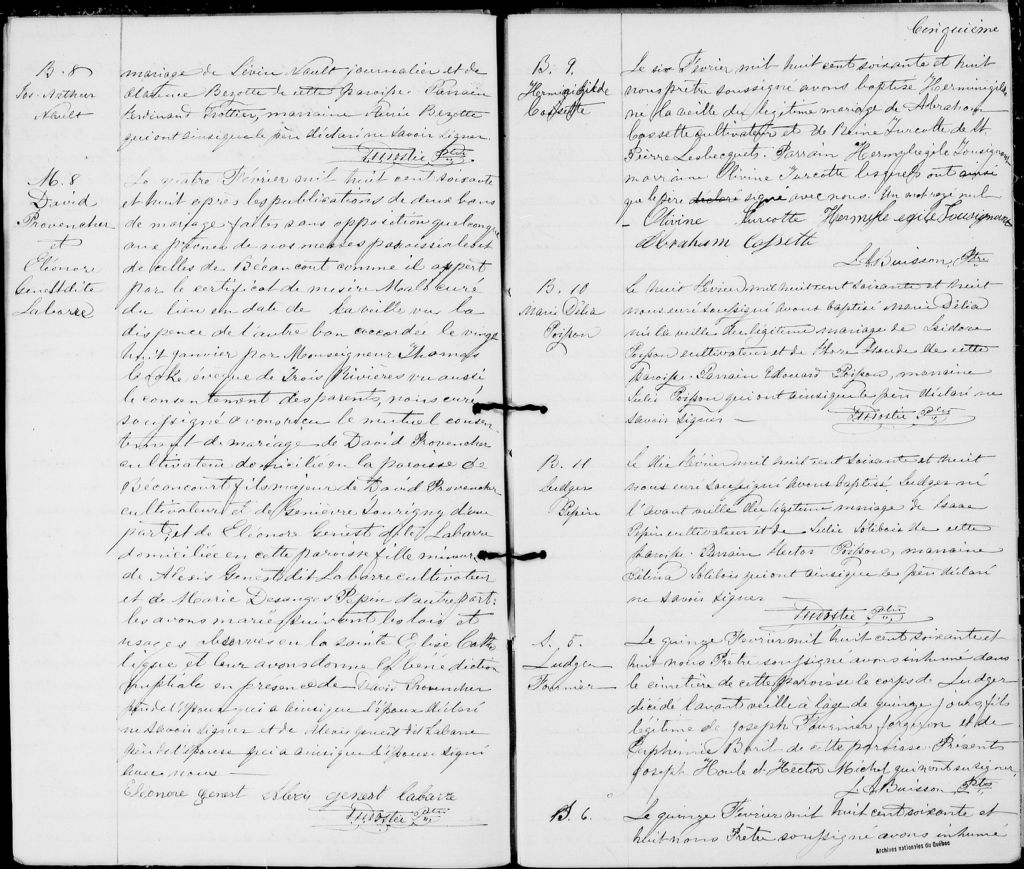 B. 8
Jos. Arthur
Nault
mariage de Lévin Nault journalier et de
Clarence Bezotte de cette paroisse Parrain
Ferdinand Trottier, marraine Marie Bezotte
qui ont ainsi que le père déclaré ne savoir signer.
Ptre
M. 8
David
Provencher
et
Eléonore
Genest dite
Labarre
Le quatre Février mil huit cent soixante
et huit après les publications de deux bans
de mariage faites sans opposition quelconque
aux prones de nos messes paroissiales et
de celles de Bécancourt comme il appert
par le certificat de messire Malo curé
du lieu en date de la veille vu la
dispence de l'autre ban accordée le vingt
huit janvier par Monseigneur Thomas
Cooke, évêque de Trois Rivières vu aussi
le consentement des parents, nous curé
soussigné avons recu le mutuel consen-
tement de mariage de David Provencher
cultivateur domicilié en la paroisse de
Bécancourt fils majeur de David Provencher
cultivateur et de Genièvre Tourigny d'une
part, et de Eléonore Genest dite Labarre
domiciliée en cette paroisse fille mineure
de Alexis Genest dit Labarre cultivateur
et de Marie Desanges Pepin d'autre part:
les avons marié suivant les lois et
usages observés en la sainte Eglise Catho
lique et leur avons donné la bénédiction
nuptiale en présence de David Provencher
père de l'époux qui a ainsi que l'époux déclaré
ne savoir signer et de Alexis genest dit Labarre
père de l'épouse qui a ainsi que l'épouse signé
avec nous —
Eleonore genest Alexis genest labarre
Ptre
Cinquième
B. 9.
Hermenigilde
Cossette
Le six Février mil huit cent soixante et huit
nous prêtre soussigné avons baptisé Hermenigile
né la veille du légitime mariage de Abraham
Cossette cultivateur et de Reine Turcotte de St.
Pierre Lesbecquets. Parrain Hermylegile Tousignant
marraine Olivine Turcotte lesquels ont ainsi
que le père declaré signé avec nous. Un mot rayé nul
Olivine Turcotte Hermyle egile Tousignant
Abraham Cossette
L A Buisson, Ptre
B. 10
Marie Délia
Poisson
Le huit Février mil huit cent soixante et huit
nous curé soussigné avons baptisé Marie Délia
née la veille du légitime mariage de Isidore
Poisson cultivateur et de Houde de cette
paroisse. Parrain Edouard Poisson, marraine
Julie Poisson qui ont ainsi que le père déclaré ne
savoir signer —
Ptre
B. 11
Ludger
Pepin
Le dix Février mil huit cent soixante et huit
nous curé soussigné avons baptisé Ludger né
l'avant veille du légitime mariage de Isaac
Pepin cultivateur et de Julie de cette
paroisse. Parrain Hector Poisson, marraine
Célina qui ont ainsi que le père déclaré
ne savoir signer
Ptre
S. 5.
Ludger
Fournier
Le quinze Février mil huit cent soixante et
huit nous Prêtre soussigné avons inhumé dans
le cimetière de cette paroisse le corps de Ludger
décédé l'avant veille à l'âge de quinze jours, fils
légitime de Joseph Fournier forgeron et de
Euphemie Baril de cette paroisse. Présents
Joseph Houle et Hector Michel qui n'ont su signer.
L A Buisson Ptre
S. 6.
Le quinze Février mil huit cent soixante et
huit nous Prêtre soussigné avons inhumé
Archives nationales du Québec